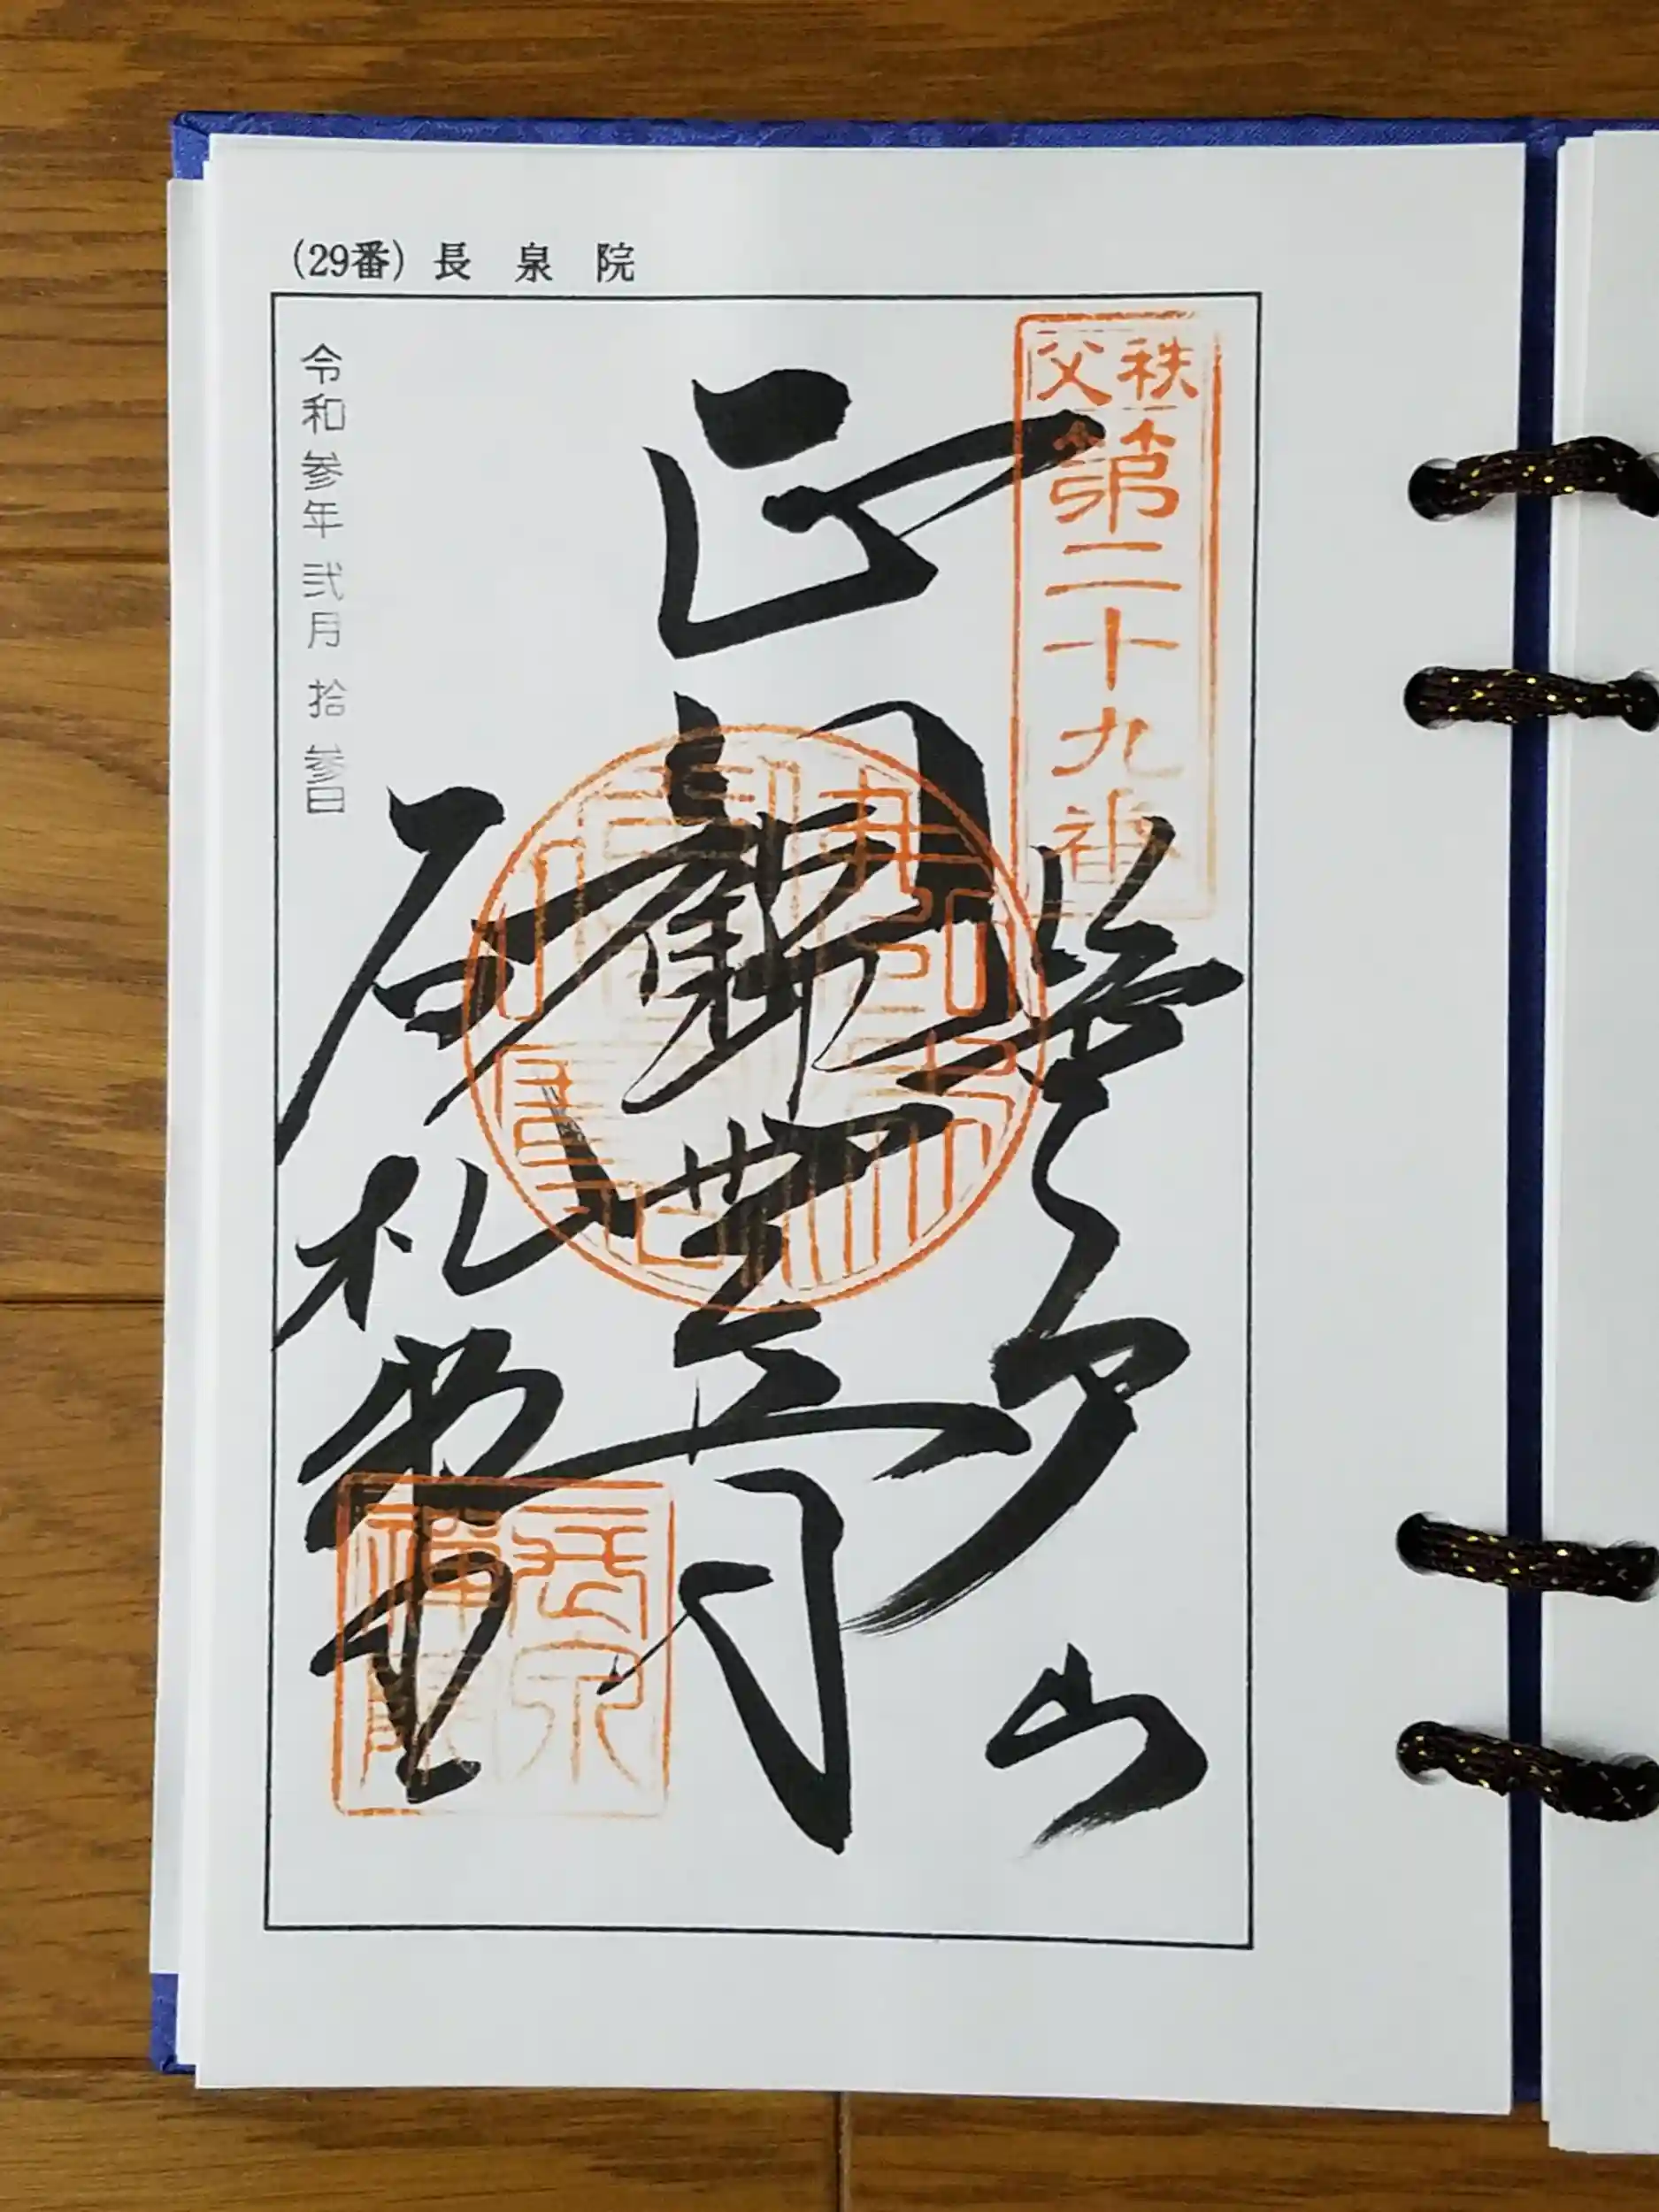 (29番) 長泉院
秩父
第二十九番
笹戸山
正觀世音
石札堂
令和参年弐月拾参日
長泉
禪院